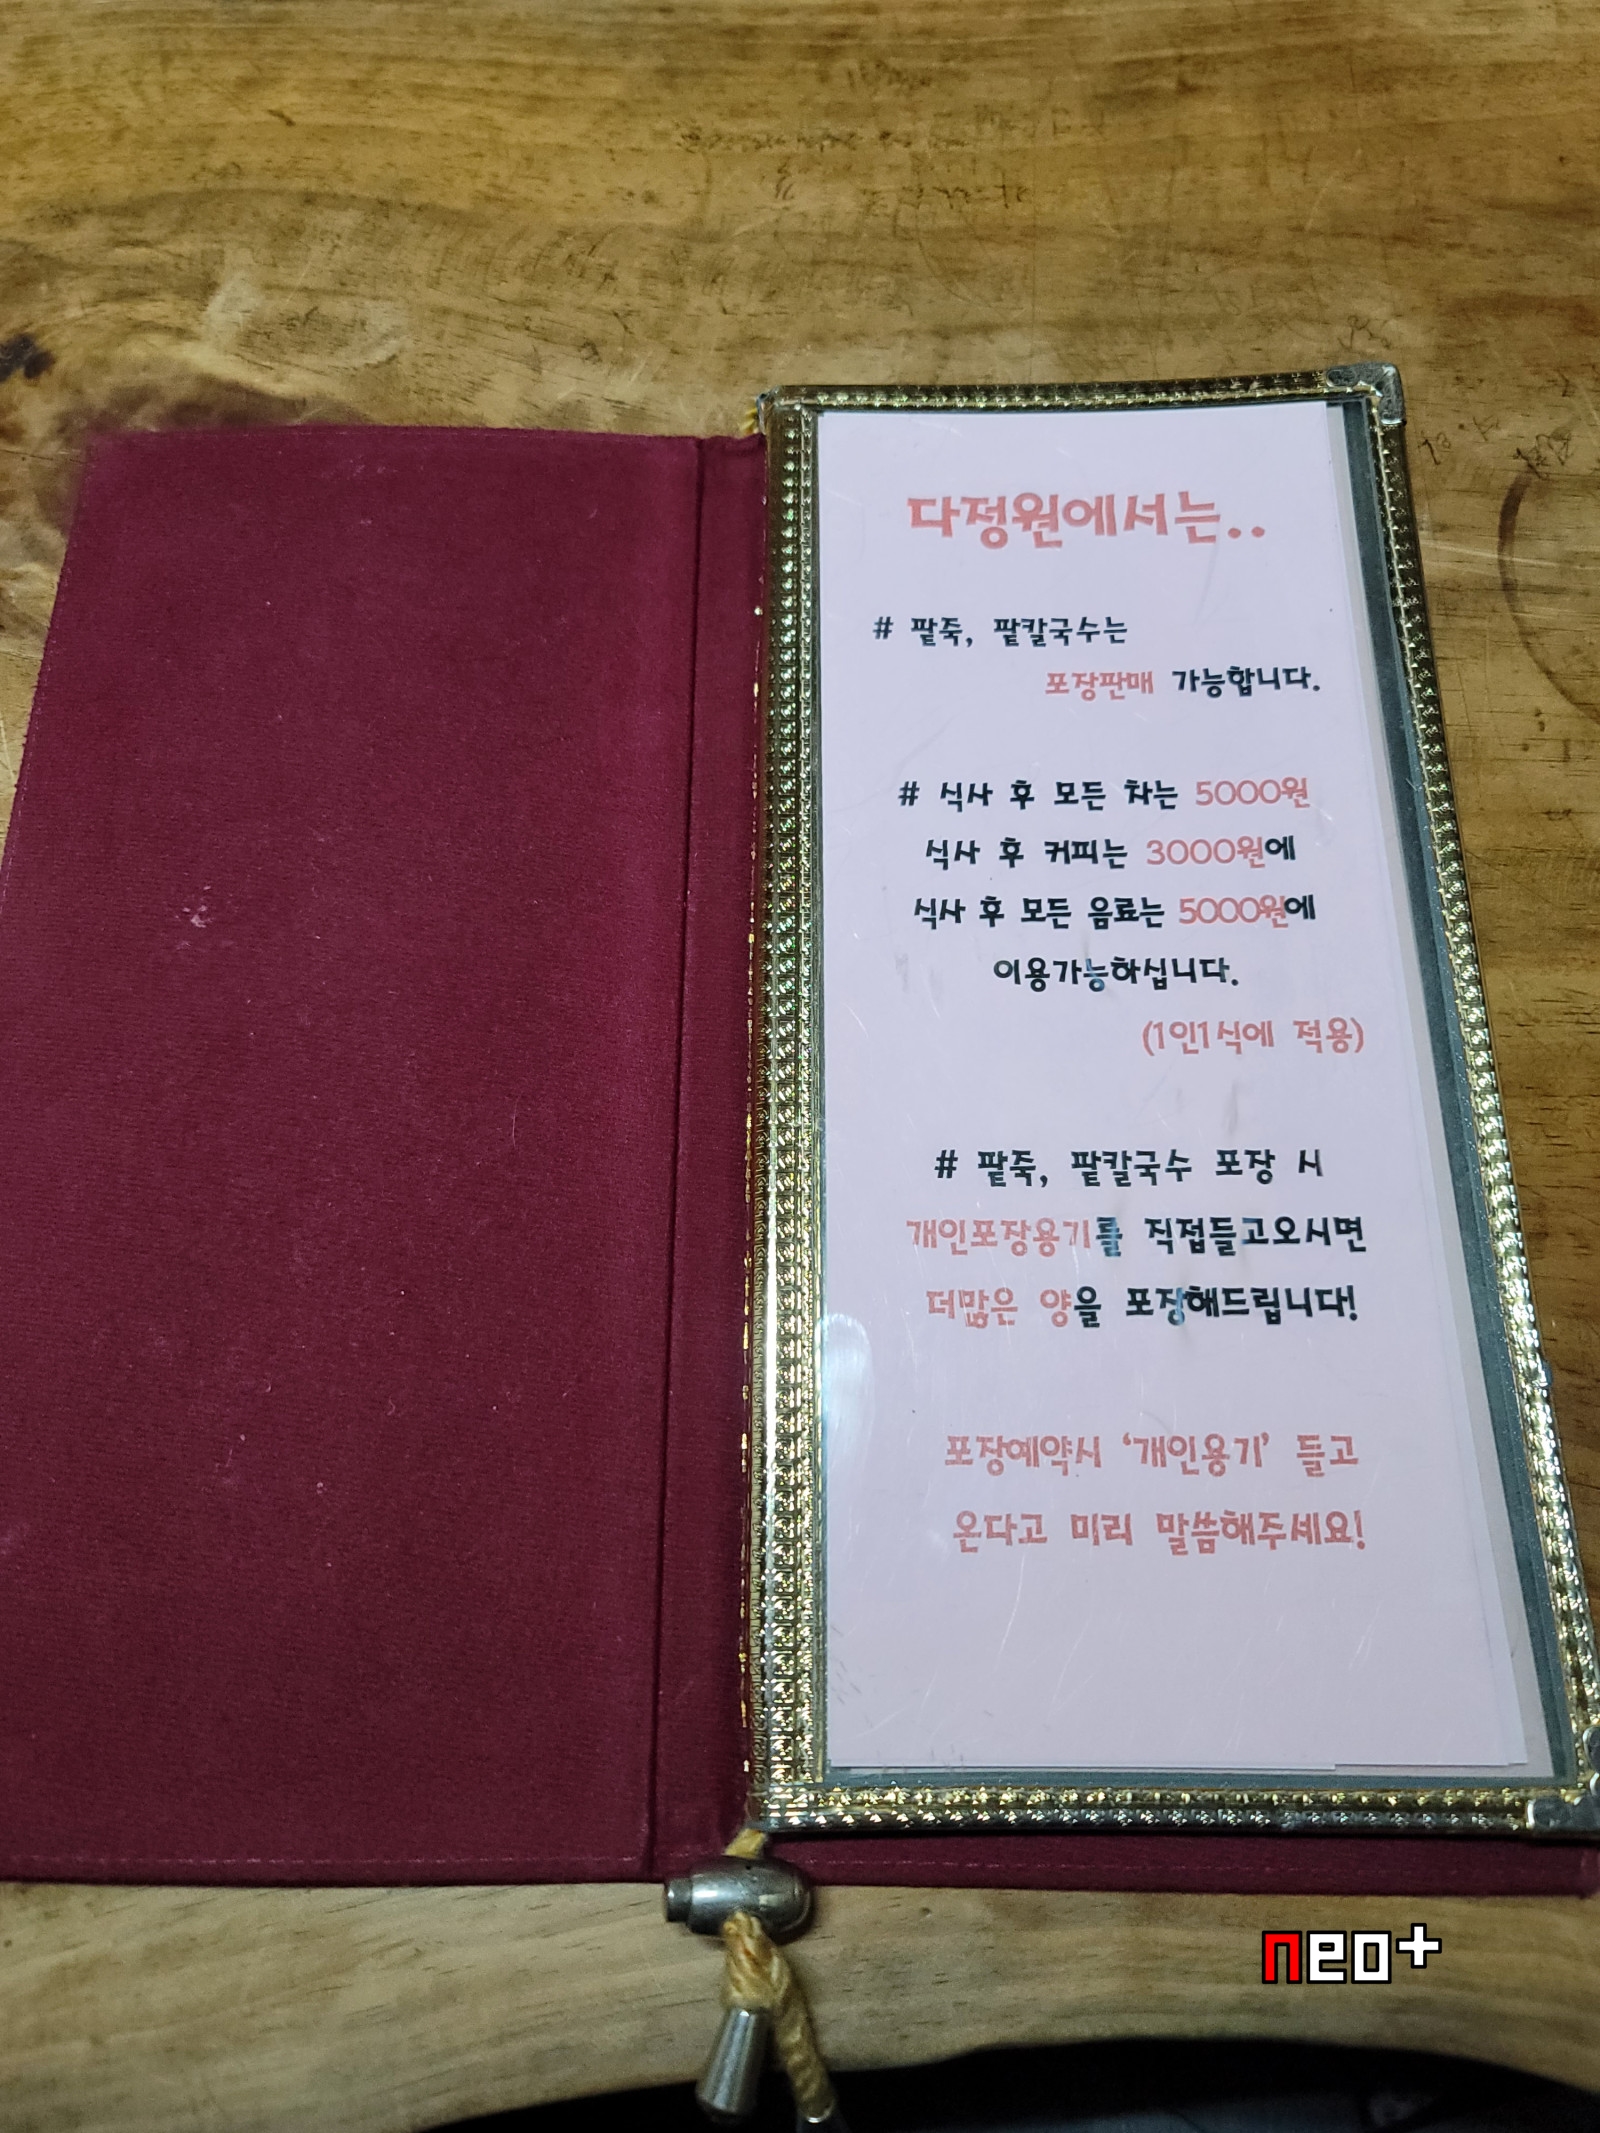 다정원에서는..
# 팥죽, 팥칼국수는
포장판매 가능합니다.
# 식사 후 모든 차는 5000원
식사 후 커피는 3000원에
식사 후 모든 음료는 5000원에
이용가능하십니다.
(1인1식에 적용)
# 팥죽, 팥칼국수 포장 시
개인포장용기를 직접들고오시면
더많은 양을 포장해드립니다!
포장예약시 '개인용기' 들고
온다고 미리 말씀해주세요!
neo+